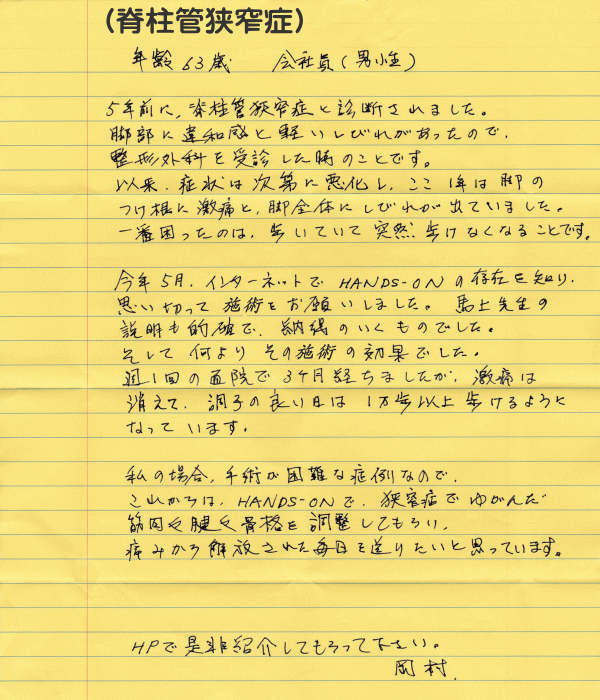 (脊柱管狭窄症)
年齢 63歳 会社員(男性)
5年前に、脊柱管狭窄症と診断されました。
脚部に違和感と軽いしびれがあったので、
整形外科を受診した時のことです。
以来、症状は次第に悪化し、ここ1年は脚の
つけ根に激痛と、脚全体にしびれが出ていました。
一番困ったのは、歩いていて突然歩けなくなることです。
今年5月、インターネットでHANDS-ONの存在を知り、
思い切って施術をお願いしました。馬上先生の
説明も的確で、納得のいくものでした。
そして何よりその施術の効果でした。
週1回の通院で3ケ月経ちましたが、激痛は
消えて、調子の良い日は1万歩以上歩けるように
なっています。
私の場合、手術が困難な症例なので、
これからは、HANDS-ONで、狭窄症でゆがんだ
筋肉や腱や骨格を調整してもらい、
痛みから解放された毎日を送りたいと思っています。
HPで是非紹介してもらって下さい。
岡村